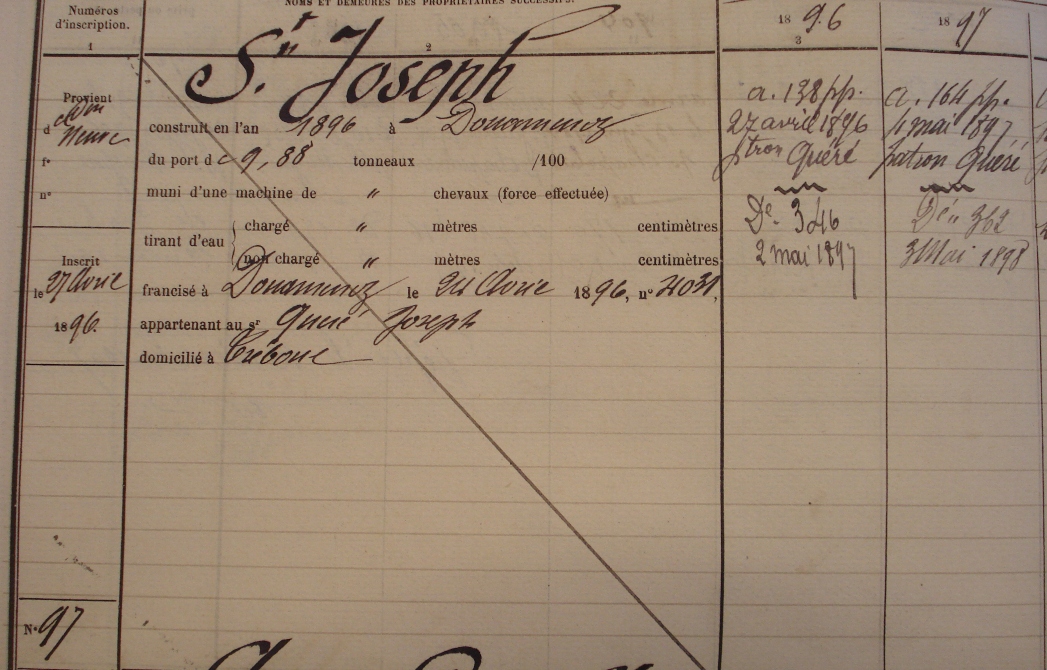 NOMS ET DEMEURES DES PROPRIÉTAIRES SUCCESSIFS.
Numéros
d'inscription.
1
2
1896
3
1897
St Joseph
Provient
d
fº
nº
Inscrit
le 27 Avril
1896.
construit en l'an 1896 à Douarnenez
du port de 9,88 tonneaux /100
muni d'une machine de " chevaux (force effectuée)
tirant d'eau { chargé " mètres centimètres
non chargé " mètres centimètres
francisé à Douarnenez le 24 Avril 1896, nº 4031,
appartenant au sr Quéré Joseph
domicilié à Tréboul
a. 138 pp.
27 avril 1896
ptron Quéré
De 346
2 mai 1897
a. 164 pp.
mai 1897
patron Quéré
Dé " 362
3 Mai 1898
Nº 97